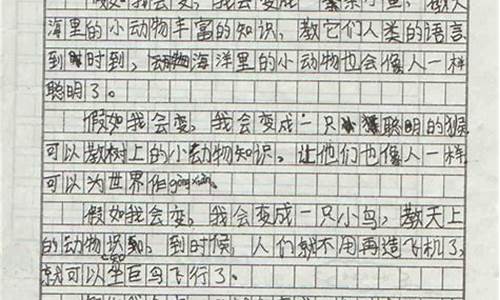 假如我会变，我会变成一条小鱼，教大
海里的小动物丰富的知识，教它们人类的语言
到时到，动物海洋里的小动物也会像人一样
聪明了。
假如我会变，我会变成一只聪明的猴
可以教树上的小动物知识，让他们也像人一样
可以为世界作gòngxiàn。
假如我会变，我会变成一只小鸟，教天上
的动物识知，到时候，人们就不用再造飞机了，
就可以坐巨鸟飞行了。